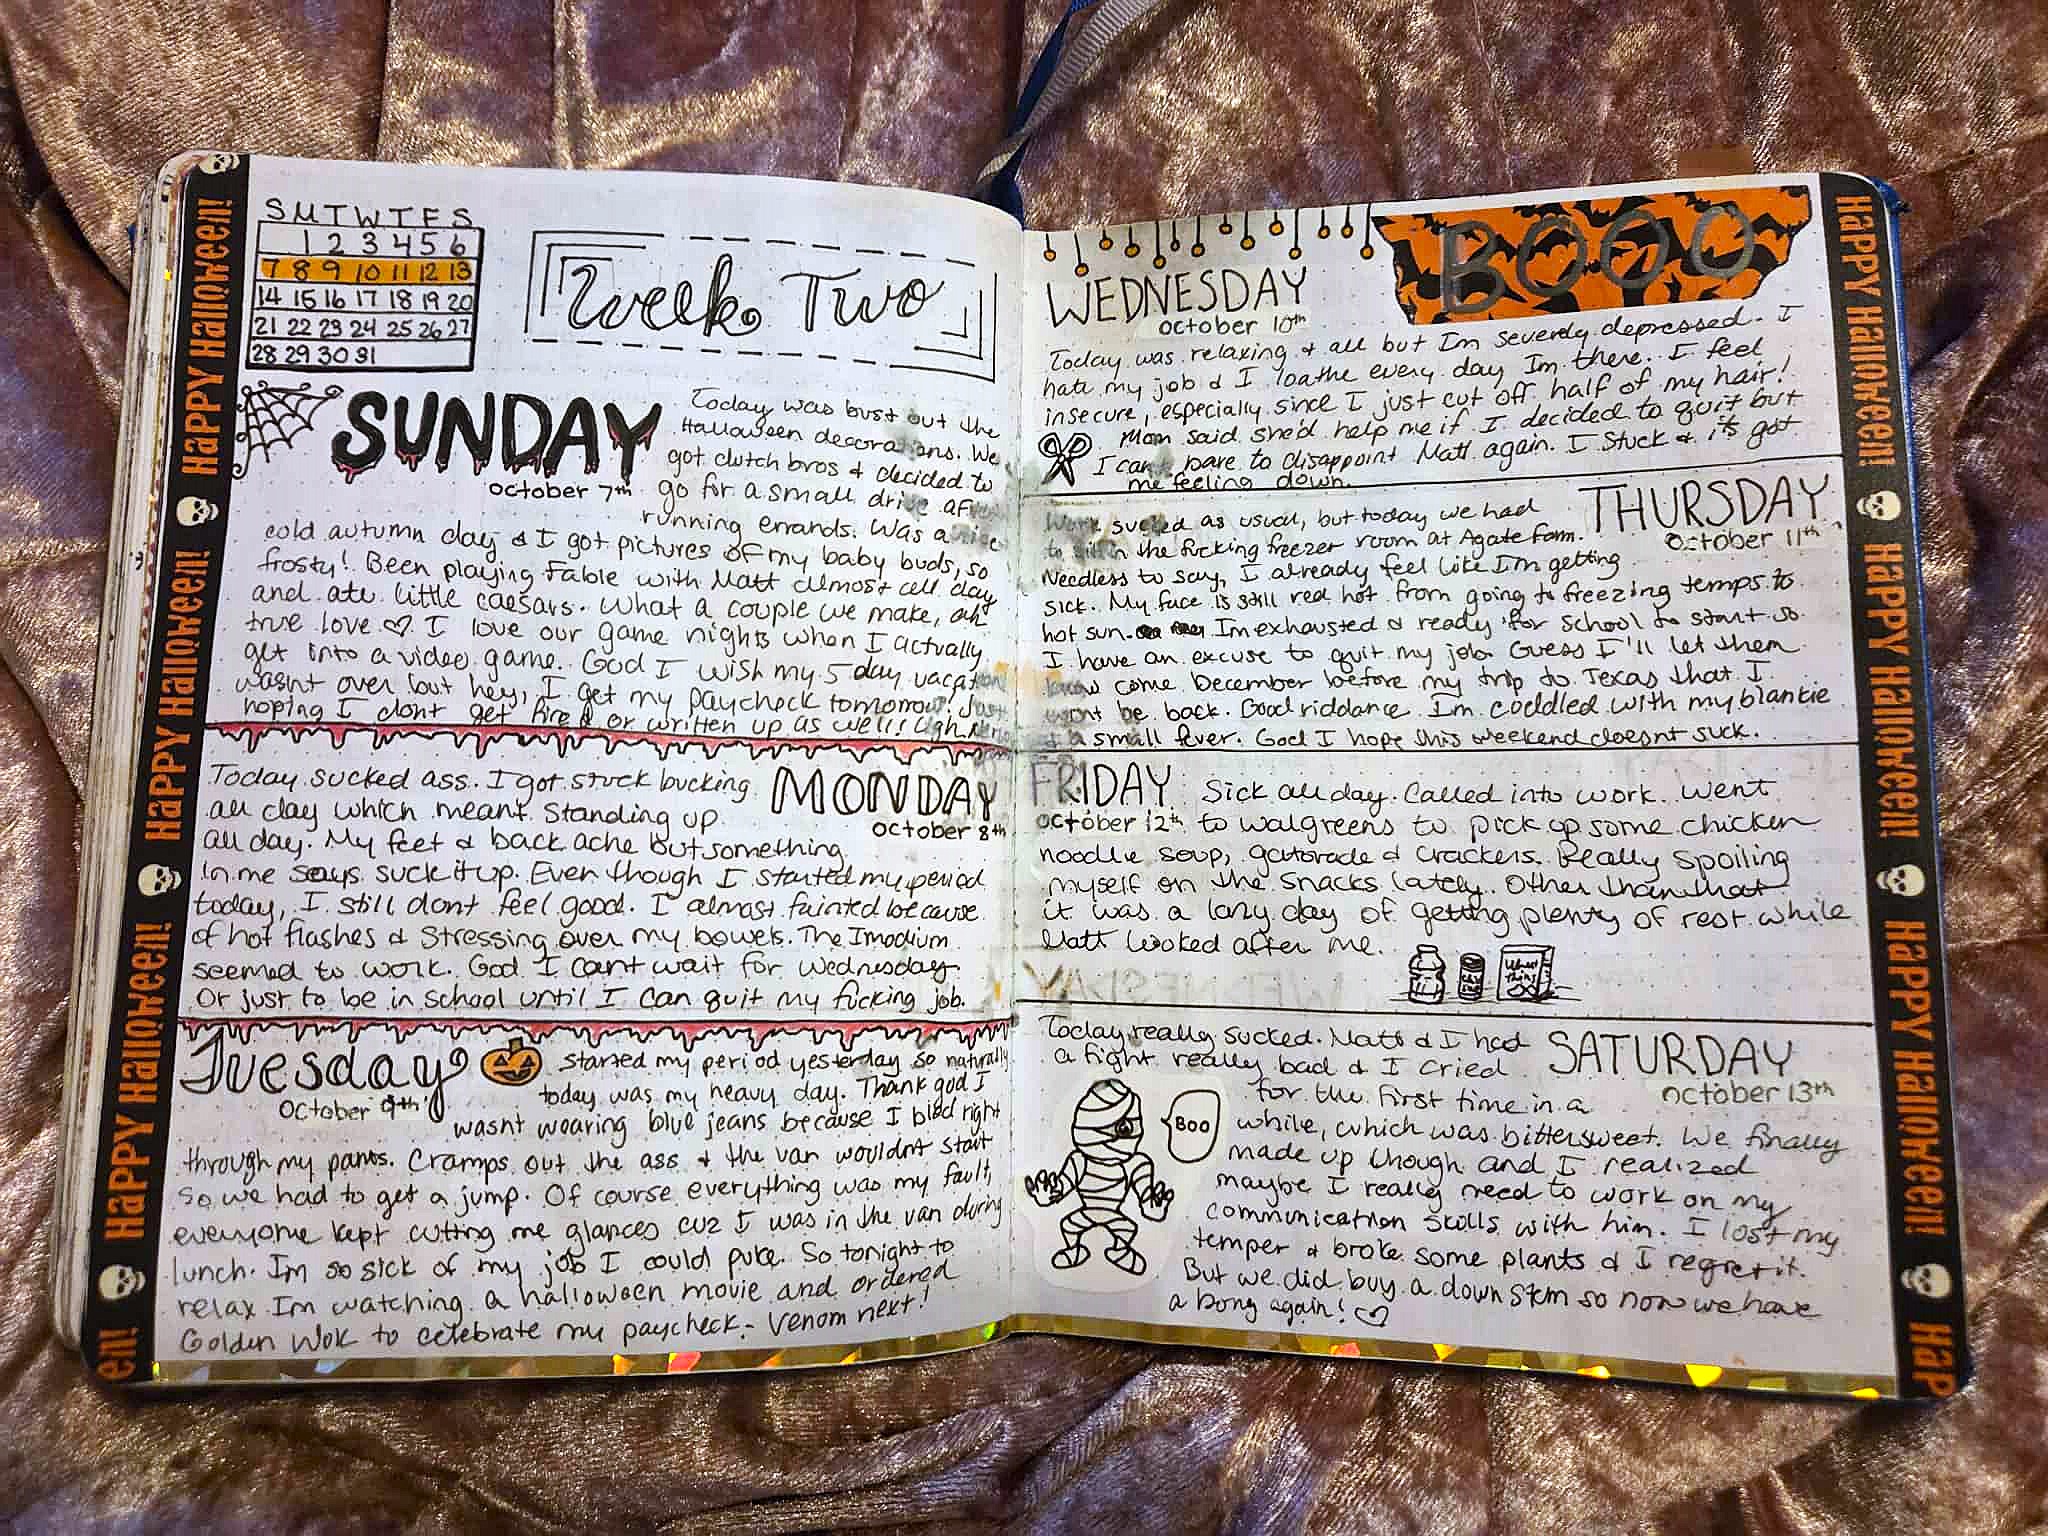 HAPPY Halloween!
HAPPY Halloween!
HAPPY Halloween!
en!
S M T W T F S
1 2 3 4 5 6
7 8 9 10 11 12 13
14 15 16 17 18 19 20
21 22 23 24 25 26 27
28 29 30 31
Week Two
SUNDAY
october 7th
Today was bust out the
Halloween decorations. We
got clutch bros & decided to
go for a small drive after
running errands. Was a nice
cold autumn day & I got pictures of my baby buds, so
frosty! Been playing Fable with Matt almost all day
and ate little caesars. What a couple we make, ah
true love ♡ I love our game nights when I actually
get into a video game. God I wish my 5 day vacation
wasnt over but hey, I get my paycheck tomorrow! Just
hoping I dont get fired or written up as well! Ugh
MONDAY
october 8th
Today sucked ass. I got stuck bucking
all day which meant standing up
all day. My feet & back ache but something
in me says suck it up. Even though I started my period
today, I still dont feel good. I almost fainted because
of hot flashes & stressing over my bowels. The Imodium
seemed to work. God I cant wait for Wednesday
Or just to be in school until I can quit my fucking job.
Tuesday
October 9th
started my period yesterday so naturally
today was my heavy day. Thank god I
wasnt wearing blue jeans because I bled right
through my pants. Cramps out the ass & the van wouldnt start
so we had to get a jump. Of course everything was my fault,
everyone kept cutting me glances cuz I was in the van during
lunch. Im so sick of my job I could puke. So tonight to
relax Im watching a halloween movie and ordered
Golden Wok to celebrate my paycheck. Venom next!
BOOO
WEDNESDAY
october 10th
Today was relaxing & all but Im severely depressed. I
hate my job & I loathe every day Im there. I feel
insecure, especially since I just cut off half of my hair!
Mom said she'd help me if I decided to quit but
I cant bare to disappoint Matt again. I stuck & its got
me feeling down.
THURSDAY
October 11th
Work sucked as usual, but today we had
to sit in the fucking freezer room at Agate Farm.
Needless to say, I already feel like I'm getting
sick. My face is still red hot from going to freezing temps to
hot sun. Im exhausted & ready for school to start so
I have an excuse to quit my job. Guess I'll let them
know come December before my trip to Texas that I
wont be back. Good riddance. Im coddled with my blankie
& a small fever. God I hope this weekend doesnt suck.
FRIDAY
october 12th
Sick all day. Called into work. Went
to walgreens to pick up some chicken
noodle soup, gatorade & crackers. Really spoiling
myself on the snacks lately. Other than that
it was a lazy day of getting plenty of rest while
Matt looked after me.
Wheat
thins
SATURDAY
october 13th
Today really sucked. Matt & I had
a fight really bad & I cried
for the first time in a
while, which was bittersweet. We finally
made up though and I realized
maybe I really need to work on my
communication skills with him. I lost my
temper & broke some plants & I regret it.
But we did buy a down stem so now we have
a bong again! ♡
BOO
HAPPY Halloween!
HAPPY Halloween!
HAPPY Halloween!
HaP